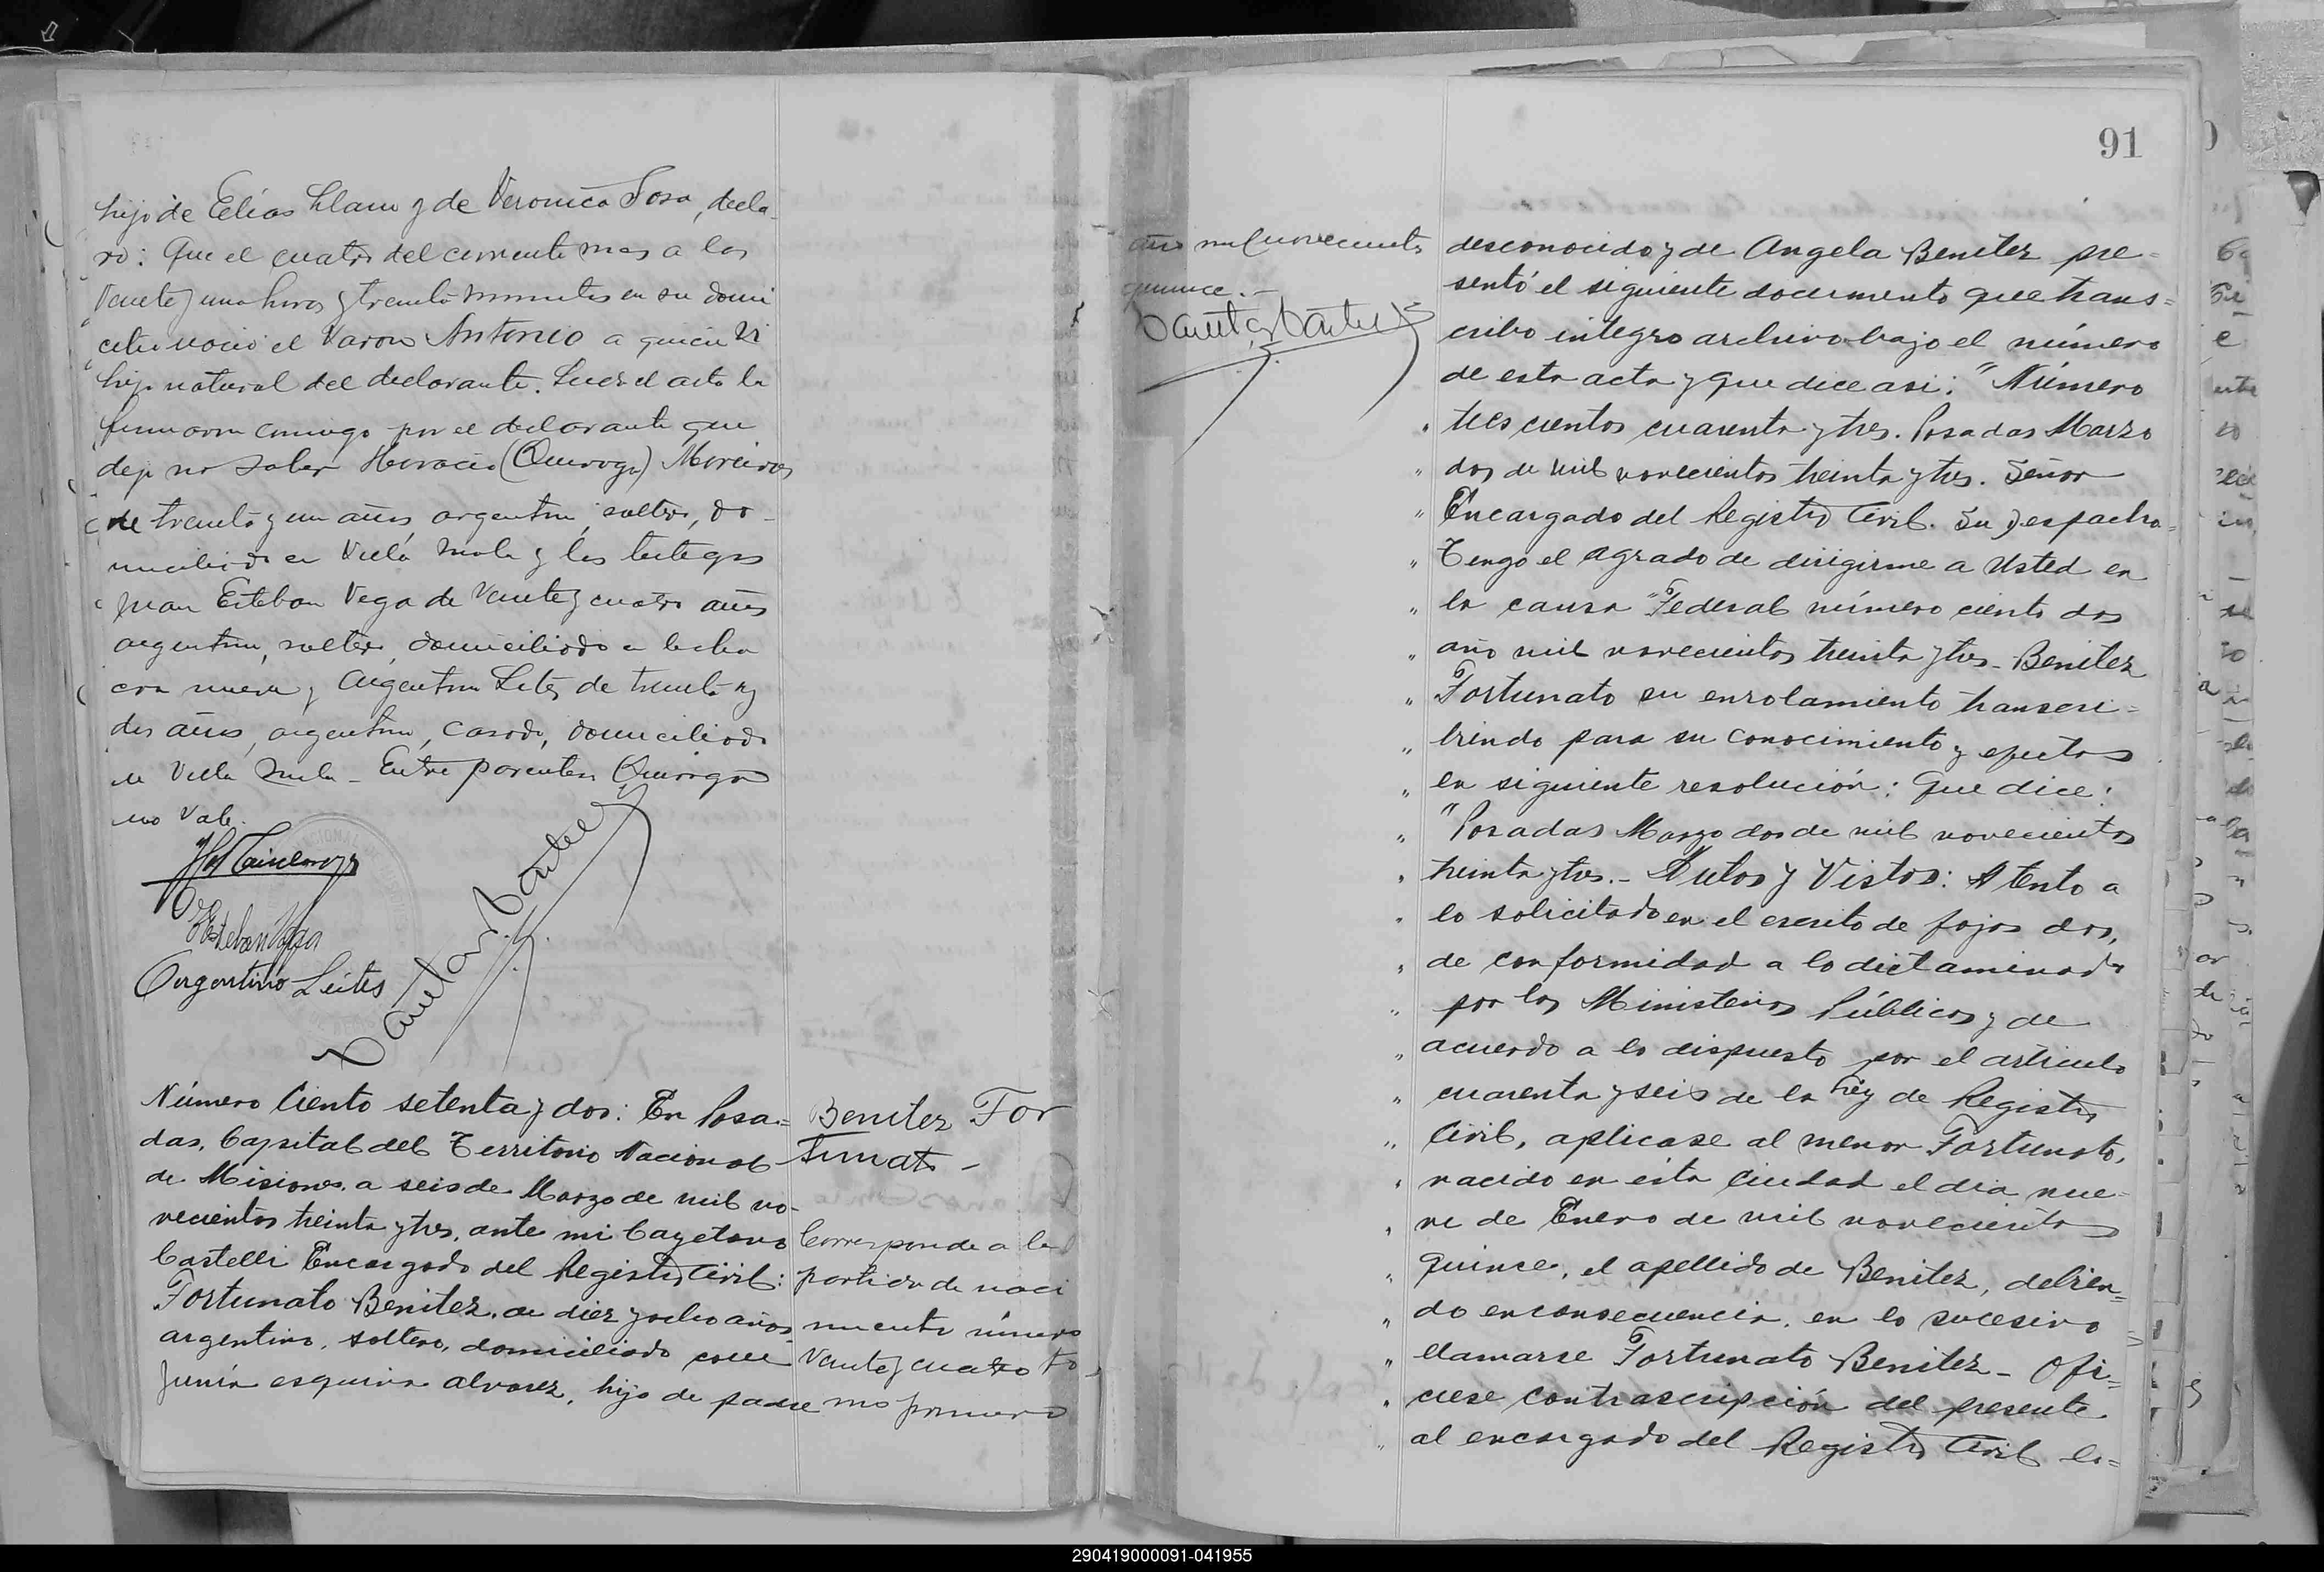 hijo de Elías Llano y de Veronica Sosa, decla-
ró: Que el cuatro del corriente mes a las
veinte y una horas y treinta minutos en su domi
cilio nació el varon Antonio a quien vi
hijo natural del declarante. Leída el acta la
firmaron conmigo por el declarante que
dijo no saber Horacio (Quiroga) Moreira
de treinta y un años, argentino, soltero, do-
miciliado en Villa y los testigos
Juan Esteban Vega de veinte y cuatro años
argentino, soltero, domiciliado en la cha
cra nueva y Argentino Leites de treinta y
dos años, argentino, casado, domiciliado
en Villa - Entre parentesis Quiroga
no vale.
Esteban Vega
Argentino Leites
Número Ciento setenta y dos: En Posa=
das, Capital del Territorio Nacional
de Misiones, a seis de Marzo de mil no-
vecientos treinta y tres, ante mi Cayetano
Castelli Encargado del Registro Civil:
Fortunato Benitez, de diez y ocho años
argentino, soltero, domiciliado calle
Junín esquina alvarez, hijo de padre
Benitez For
tunato -
Corresponde a la
partida de naci
miento número
veinte y cuatro to
mo primero
91
año mil novecientos
quince. -
desconocido y de Angela Benitez pre=
sentó el siguiente documento que trans=
cribo integro archivo bajo el número
de esta acta y que dice asi: "Número
" trescientos cuarenta y tres. Posadas Marzo
" dos de mil novecientos treinta y tres. Señor
" Encargado del Registro Civil. Su Despacho=
" Tengo el agrado de dirigirme a Usted en
" la causa "Federal número ciento dos
" año mil novecientos treinta y tres - Benitez
" Fortunato su enrolamiento transcri=
" biendo para su conocimiento y efectos
" la siguiente resolución: Que dice:
" "Posadas Marzo dos de mil novecientos
" treinta y tres. - Autos y Vistos: Atento a
" lo solicitado en el escrito de fojas dos,
" de conformidad a lo dictaminado
" por los Ministerios Públicos y de
" acuerdo a lo dispuesto por el artículo
" cuarenta y seis de la Ley de Registro
" Civil, aplicase al menor Fortunato,
" nacido en ésta Ciudad el dia nue-
" ve de Enero de mil novecientos
" quince, el apellido de Benitez, debien=
" do en consecuencia, en lo sucesivo
" llamarse Fortunato Benitez - Ofi=
" ciese con trascripción del presente
" al encargado del Registro Civil lo=
290419000091-041955